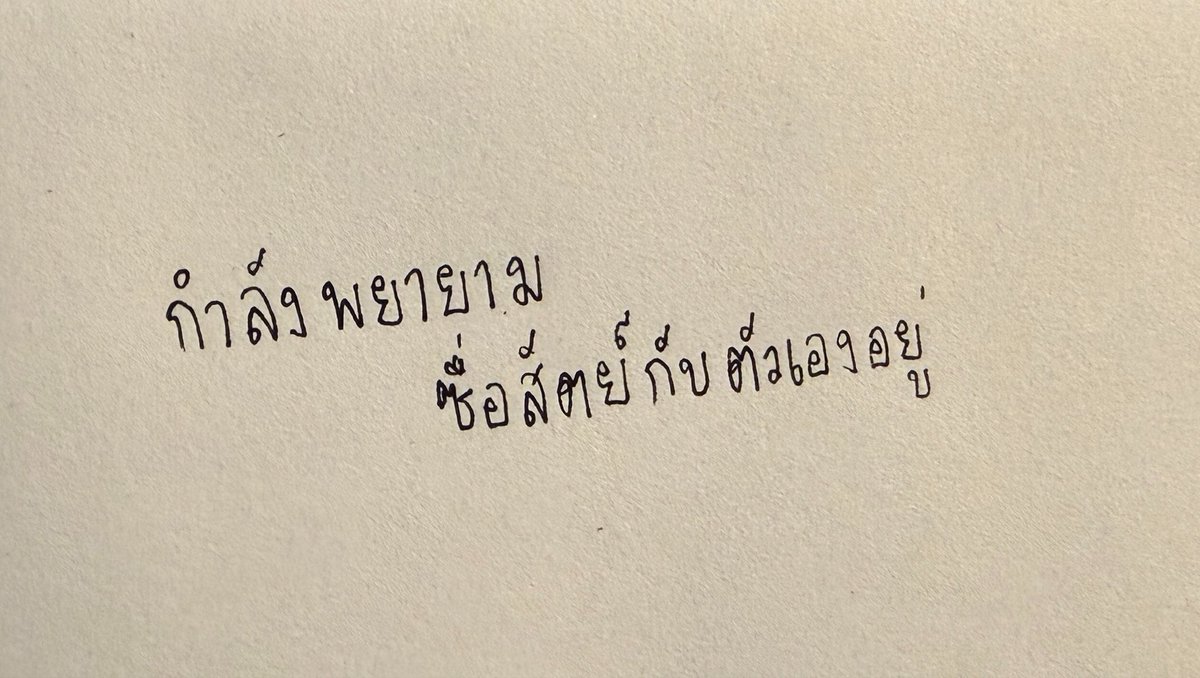 กำลังพยายาม
ซื่อสัตย์กับตัวเองอยู่